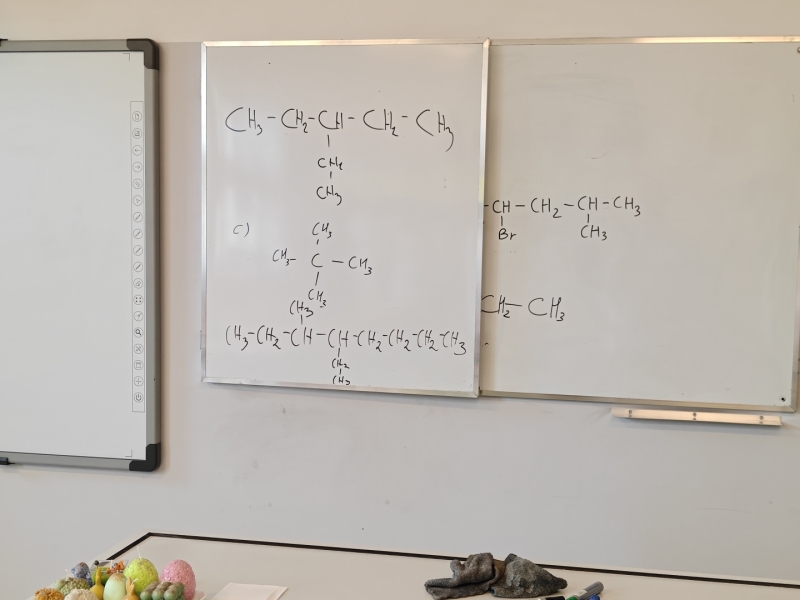 CH₃-CH₂-CH-CH₂-CH₃
CH₂
CH₃
C)
CH₃
CH₃-C-CH₃
CH₃
CH₃
CH₃-CH₂-CH-CH-CH₂-CH₂-CH₂-CH₃
CH₂
CH₃
-CH-CH₂-CH-CH₃
Br CH₃
CH₂-CH₃